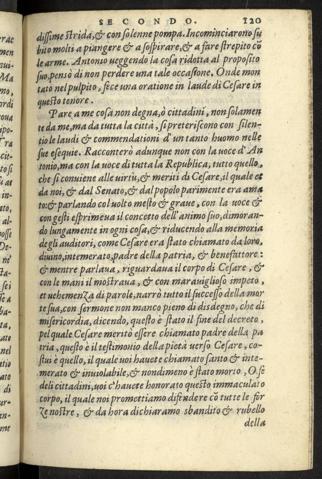 SECONDO. 120
dissime strida, & con solenne pompa. Incominciarono su
bito molti a piangere & a sospirare, & a fare strepito cō
le arme. Antonio ueggendo la cosa ridotta al proposito
suo, pensò di non perdere una tale occasione. Onde mon
tato nel pulpito, fece una oratione in laude di Cesare in
questo tenore.
Pare a me cosa non degna, ò cittadini, non solamen
te da me, ma da tutta la città, si preteriscono con silen-
tio le laudi & commendationi d'un tanto huomo nelle
sue essequie. Racconterò adunque non con la uoce d'An
tonio, ma con la uoce di tutta la Republica, tutto quello,
che si conuiene alle uirtù, & meriti di Cesare, il quale et
da noi, & dal Senato, & dal popolo parimente era ama
to: & parlando col uolto mesto & graue, con la uoce &
con gesti esprimeua il concetto dell'animo suo, dimoran-
do lungamente in ogni cosa, & riducendo alla memoria
degli auditori, come Cesare era stato chiamato da loro,
diuino, intemerato, padre della patria, & benefattore:
& mentre parlaua, riguardaua il corpo di Cesare, &
con le mani il mostraua, & con marauiglioso impeto,
et uehemenza di parole, narrò tutto il successo della mor
te sua, con sermone non manco pieno di disdegno, che di
misericordia, dicendo, questo è stato il fine del decreto,
pel quale Cesare meritò essere chiamato padre della pa
tria, questo è il testimonio della pietà uerso Cesare, co-
stui è quello, il quale uoi hauete chiamato santo & inte-
merato & inuiolabile, & nondimeno è stato morto, O se
deli cittadini, uoi c'hauete honorato questo immaculato
corpo, il quale noi promettiamo difendere cō tutte le for
ze nostre, & da hora dichiaramo sbandito & rubello
della